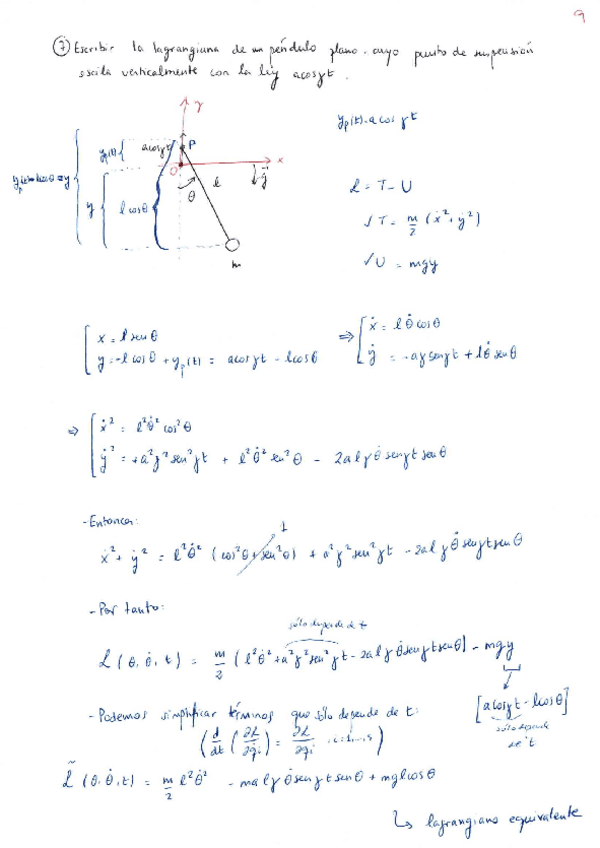 9
⑦ Escribir la lagrangiana de un péndulo plano cuyo punto de suspensión
oscila verticalmente con la ley acosγt.
y
y_p(t)=acosγt
y_p(t) acosγt P
O x
y lcosθ θ l g
m
L = T-U
√T = m/2 (ẋ²+ẏ²)
√U = mgy
x = lsenθ
y = -lcosθ + y_p(t) = acosγt - lcosθ
⇒ ẋ = lθ̇cosθ
ẏ = -aγsenγt + lθ̇senθ
⇒ ẋ² = l²θ̇²cos²θ
ẏ² = +a²γ²sen²γt + l²θ̇²sen²θ - 2alγθ̇senγt senθ
- Entonces:
1
ẋ² + ẏ² = l²θ̇² (cos²θ+sen²θ) + a²γ²sen²γt - 2alγθ̇senγtsenθ
- Por tanto:
sólo depende de t
L(θ, θ̇, t) = m/2 (l²θ̇² + a²γ²sen²γt - 2alγθ̇senγtsenθ) - mgy
[acosγt - lcosθ]
sólo depende
de t
- Podemos simplificar términos que sólo depende de t:
(d/dt (∂L/∂q̇i) = ∂L/∂qi i=1,...,s)
L̃(θ,θ̇,t) = m/2 l²θ̇² - malγθ̇senγtsenθ + mglcosθ
↳ lagrangiano equivalente